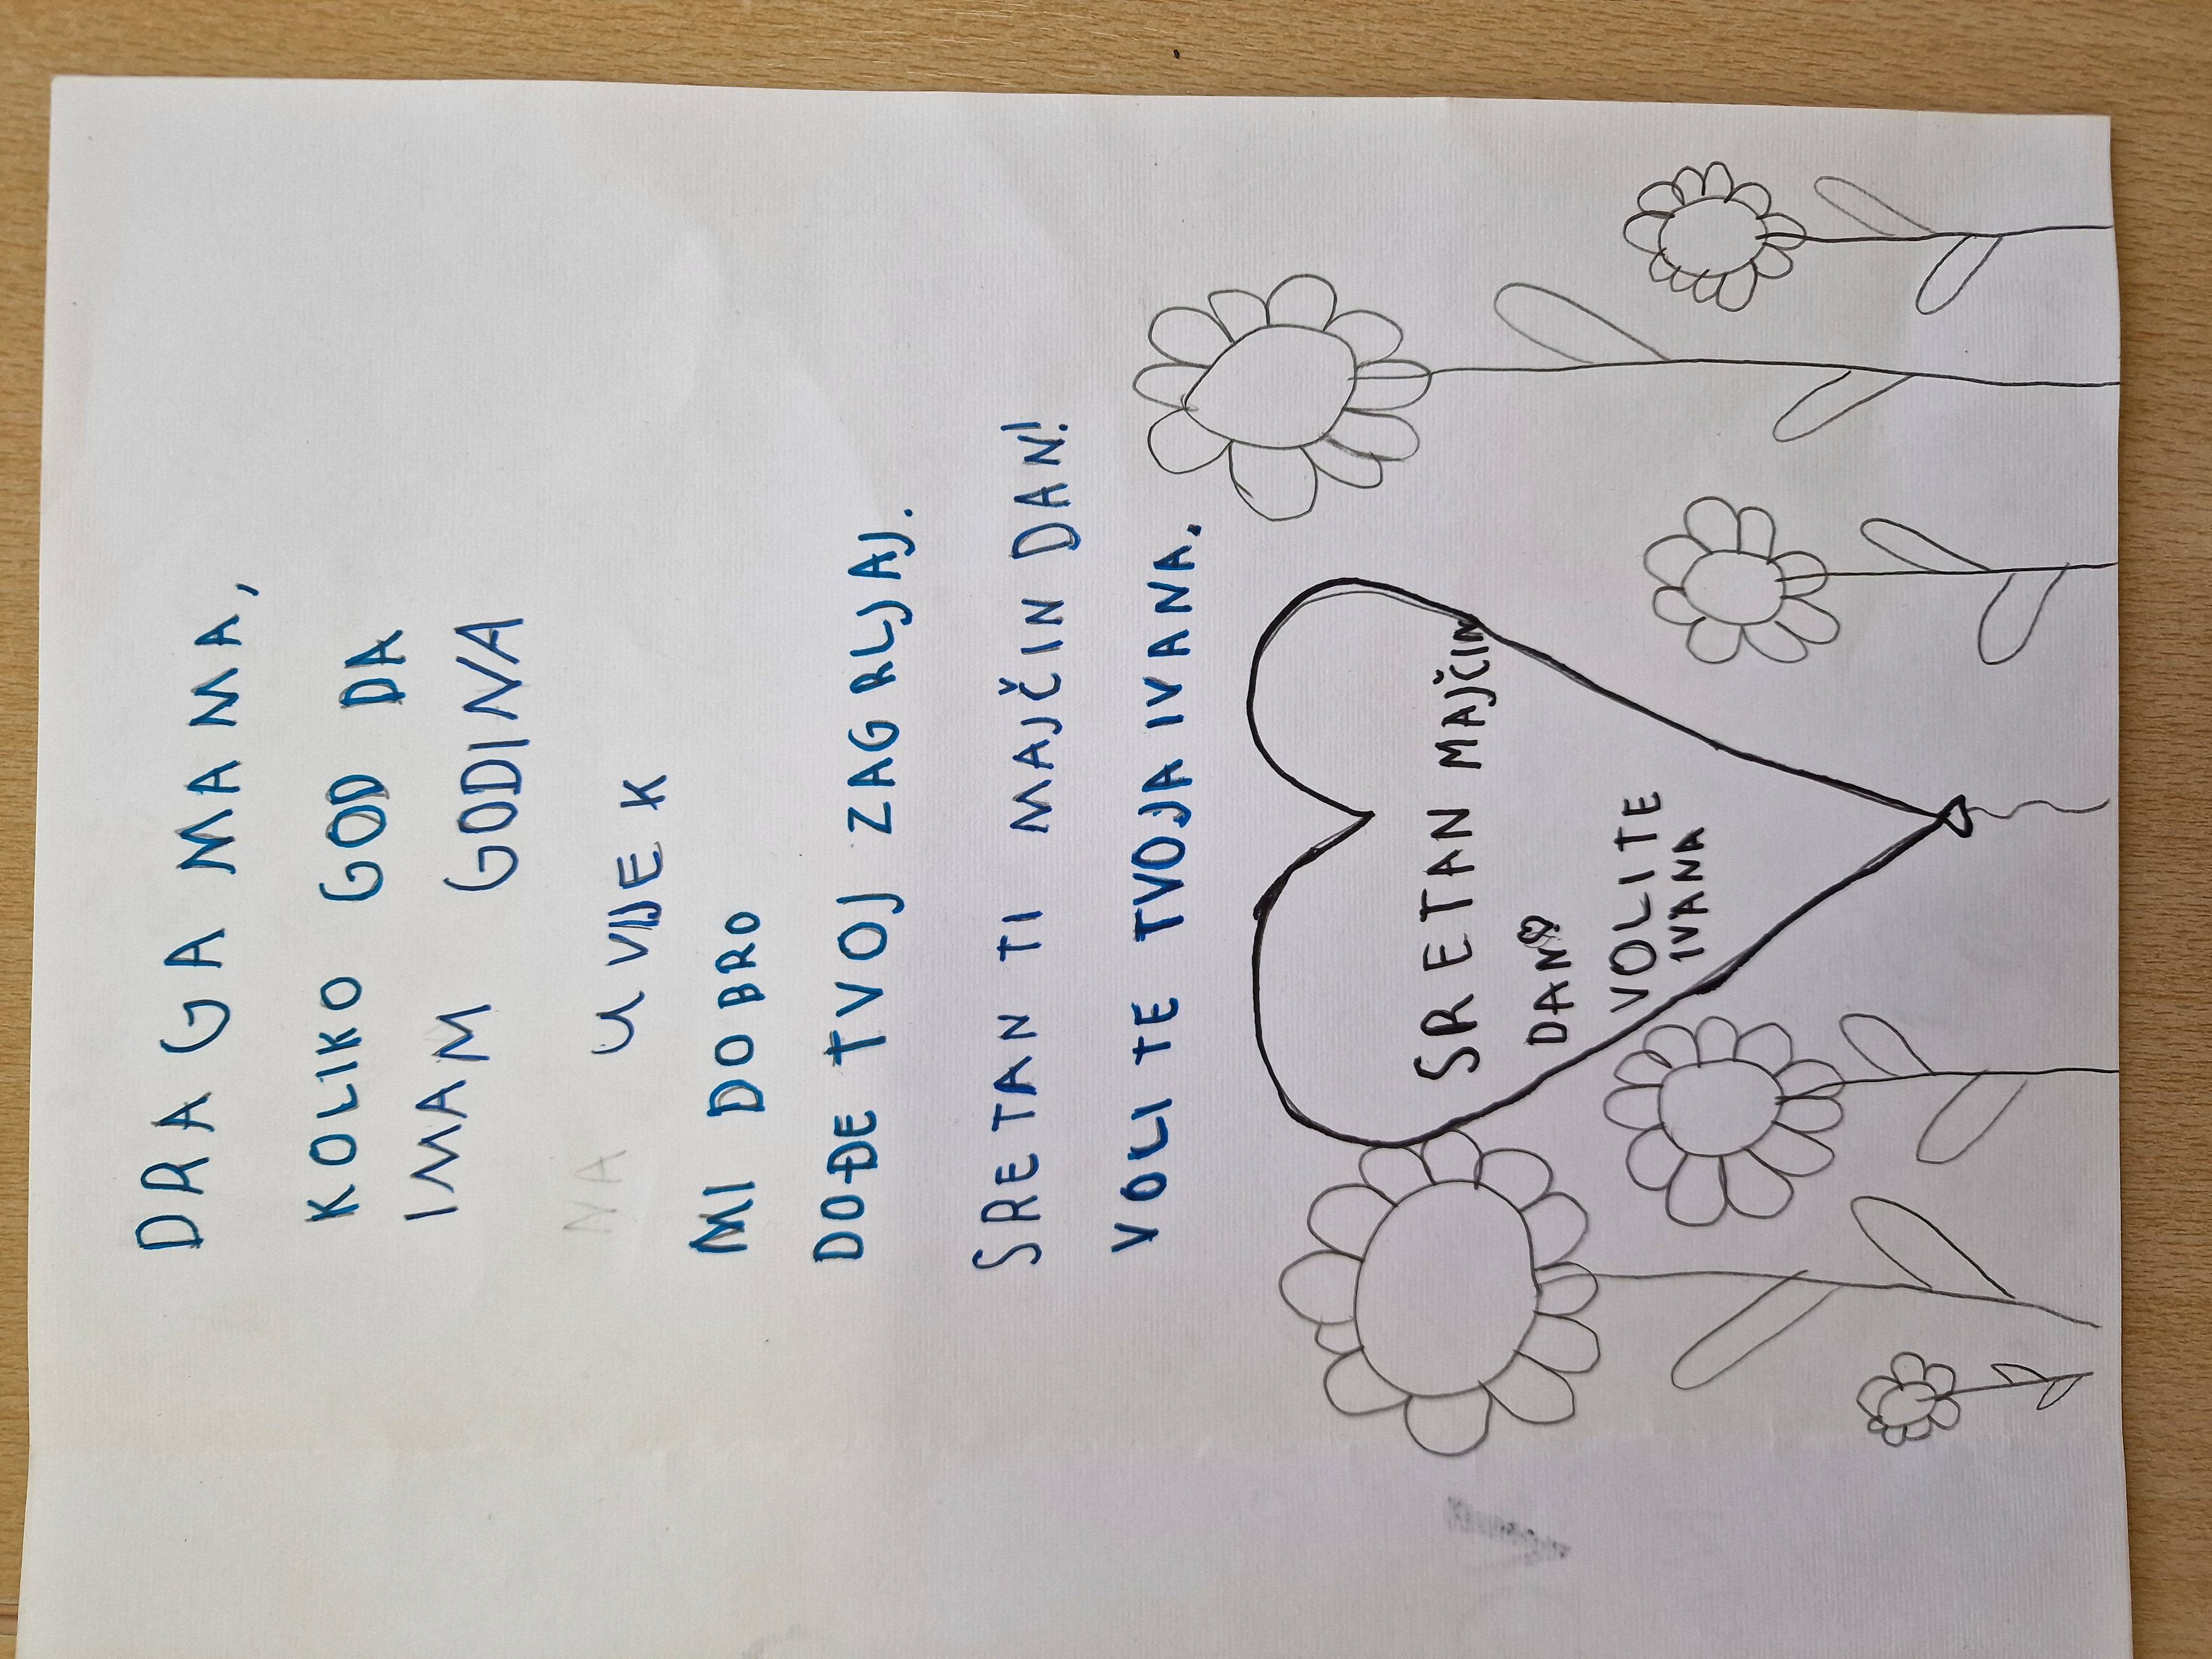 DRAGA MAMA,
KOLIKO GOD DA
IMAM GODINA
NA UVIJEK
MI DOBRO
DOĐE TVOJ ZAGRLJAJ.
SRETAN TI MAJČIN DAN!
VOLI TE TVOJA IVANA.
SRETAN MAJČIN
DAN!
VOLI TE
IVANA